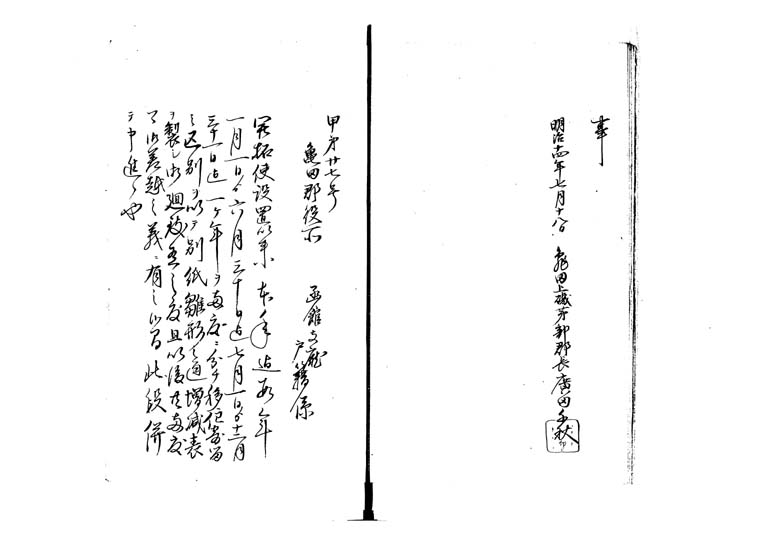 事
明治十四年七月十八日 亀田上磯茅部郡長廣田千秋
甲第廿七号
亀田郡役所 函館支廳
戸籍係
開拓使設置以来本年迄毎年
一月一日ゟ六月三十日迄七月一日ゟ十二月
三十一日迄一ケ年ヲ両度ニ分チ移住寄留
之区別ヲ以テ別紙雛形之通増減表
ヲ製シ御廻致有之度且以後モ両度
ツヽ御差越之義ニ有之候間此段併
テ申進候也